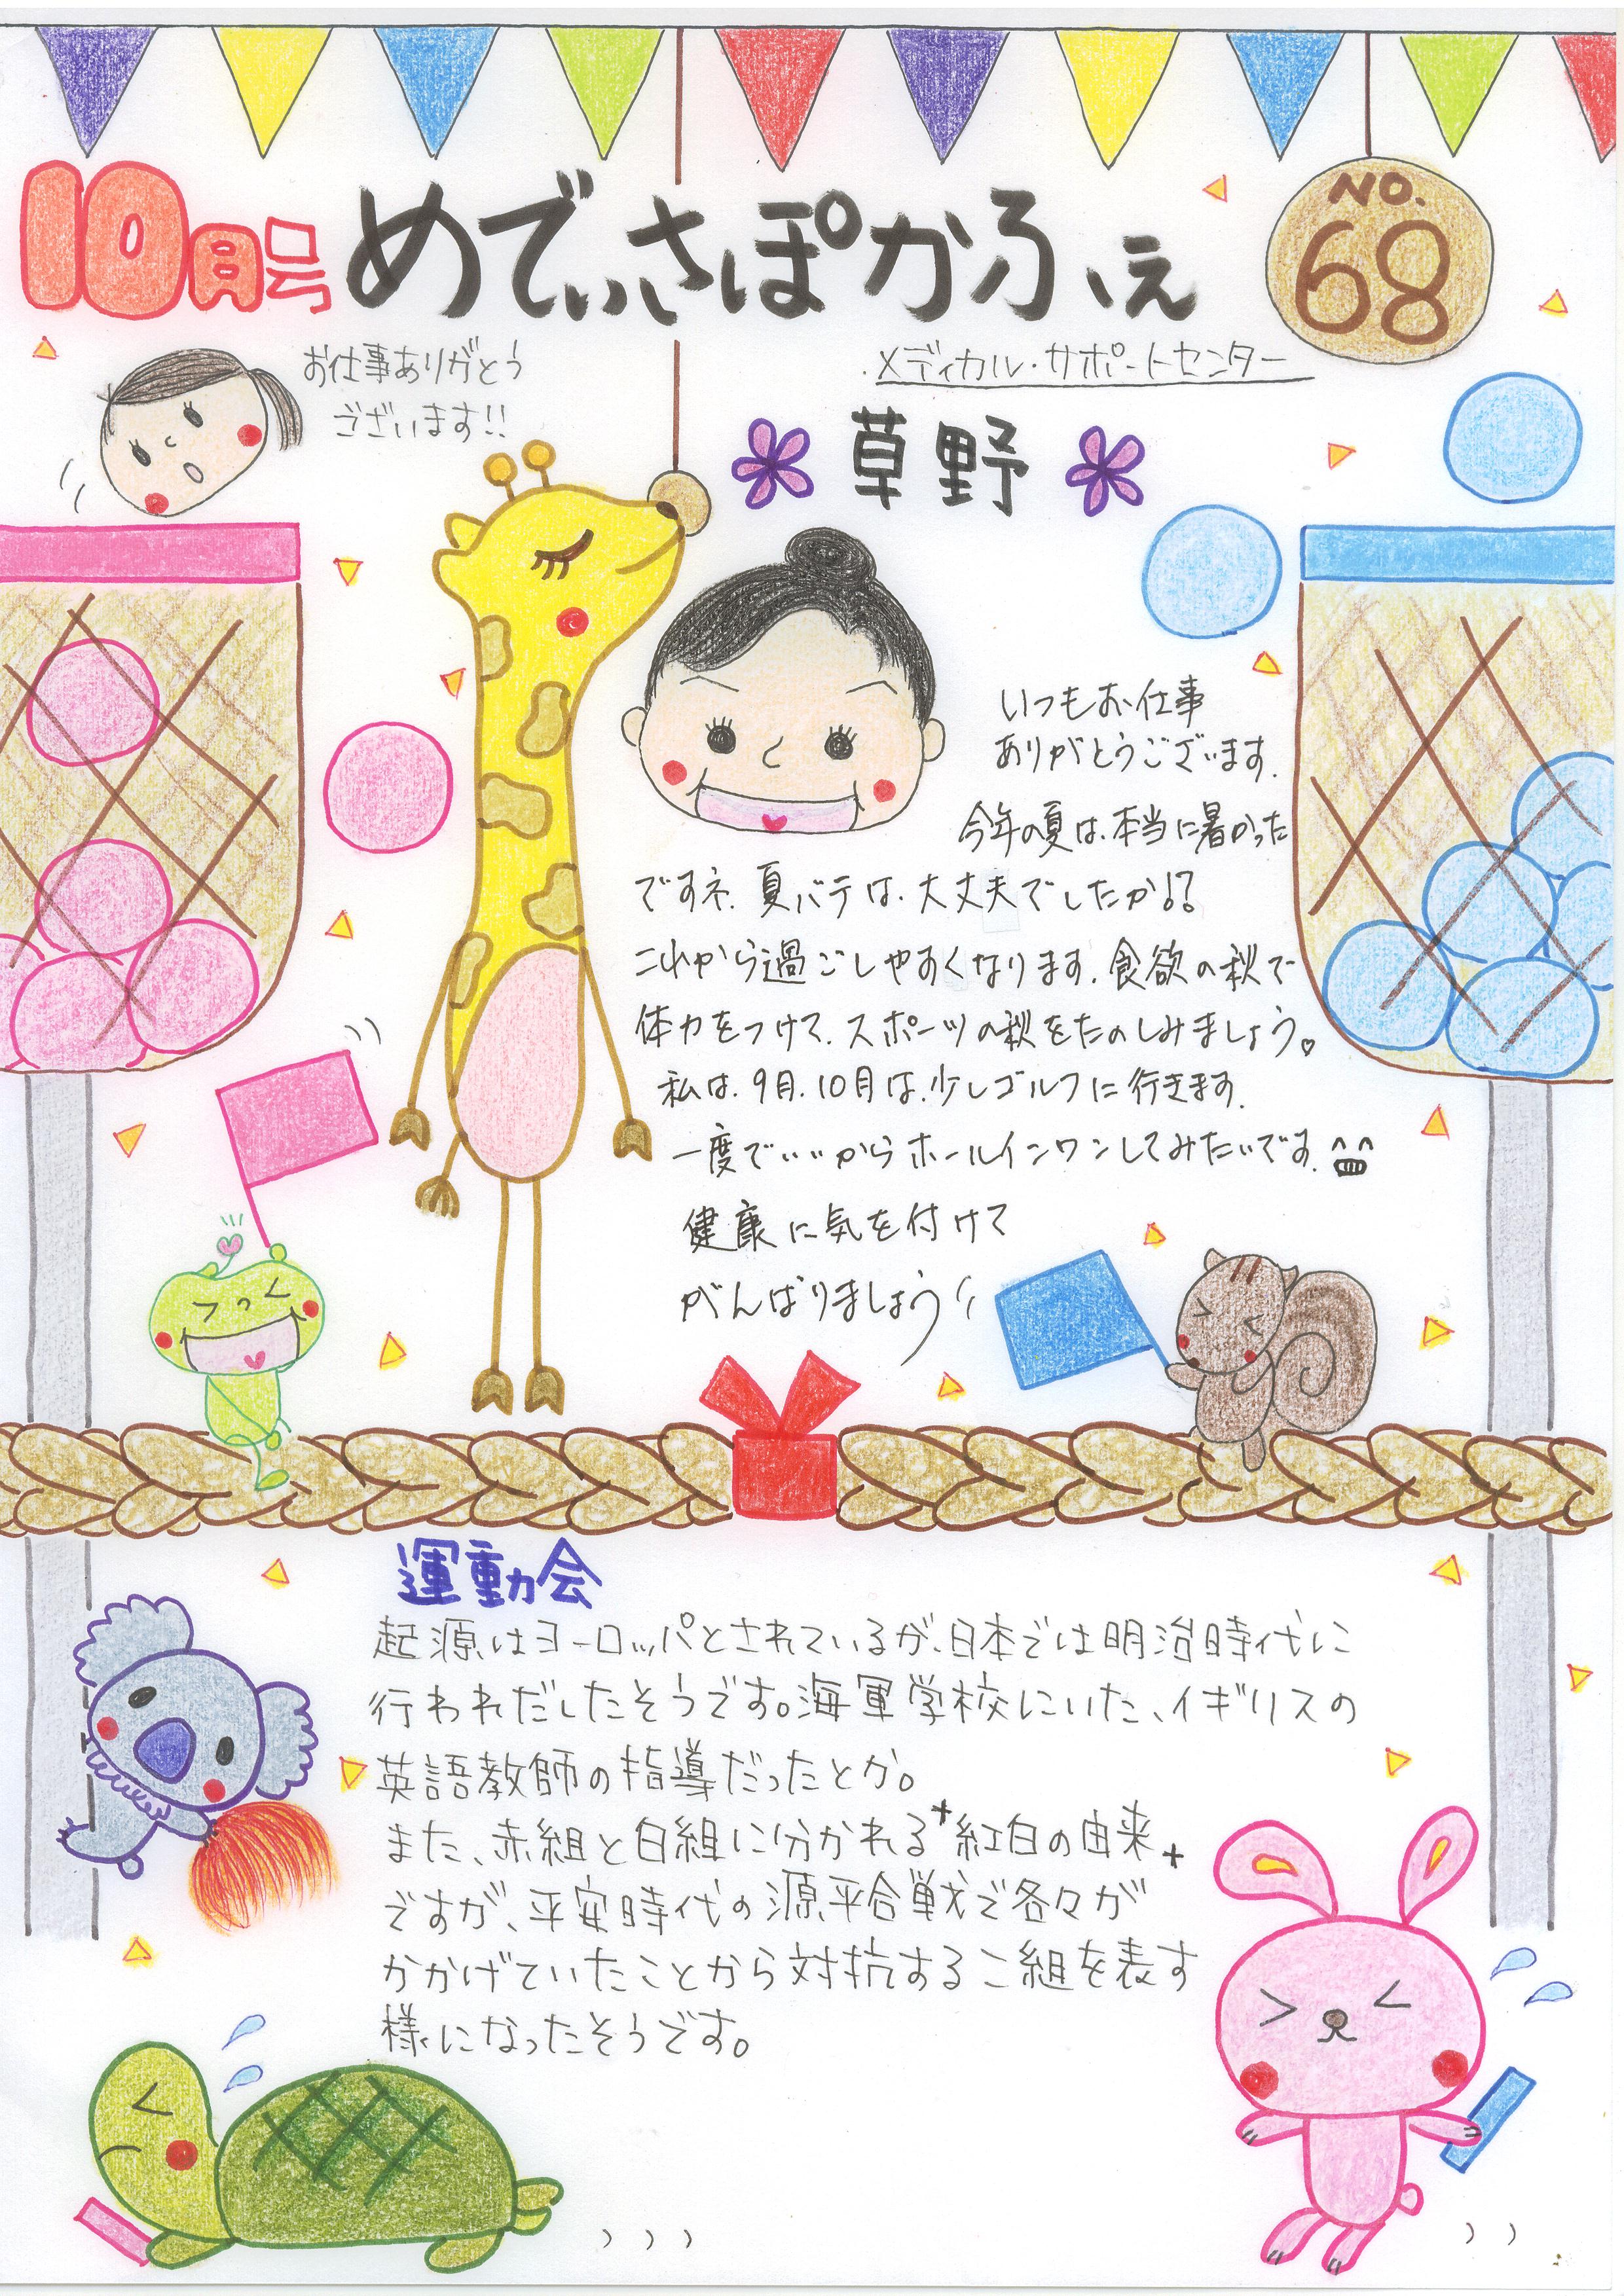 10月号 めでぃさぽかふぇ
NO.
68
お仕事ありがとう
ございます!!
メディカル・サポートセンター
草野
いつもお仕事
ありがとうございます.
今年の夏は、本当に暑かった
ですネ.夏バテは、大丈夫でしたか!?
これから過ごしやすくなります.食欲の秋で
体力をつけて、スポーツの秋をたのしみましょう。
私は、9月、10月は、少しゴルフに行きます.
一度でいいからホールインワンしてみたいです.
健康に気を付けて
がんばりましょう
運動会
起源はヨーロッパとされているが、日本では明治時代に
行われだしたそうです。海軍学校にいた、イギリスの
英語教師の指導だったとか。
また、赤組と白組に分かれる紅白の由来
ですが、平安時代の源平合戦で各々が
かかげていたことから対抗する二組を表す
様になったそうです。